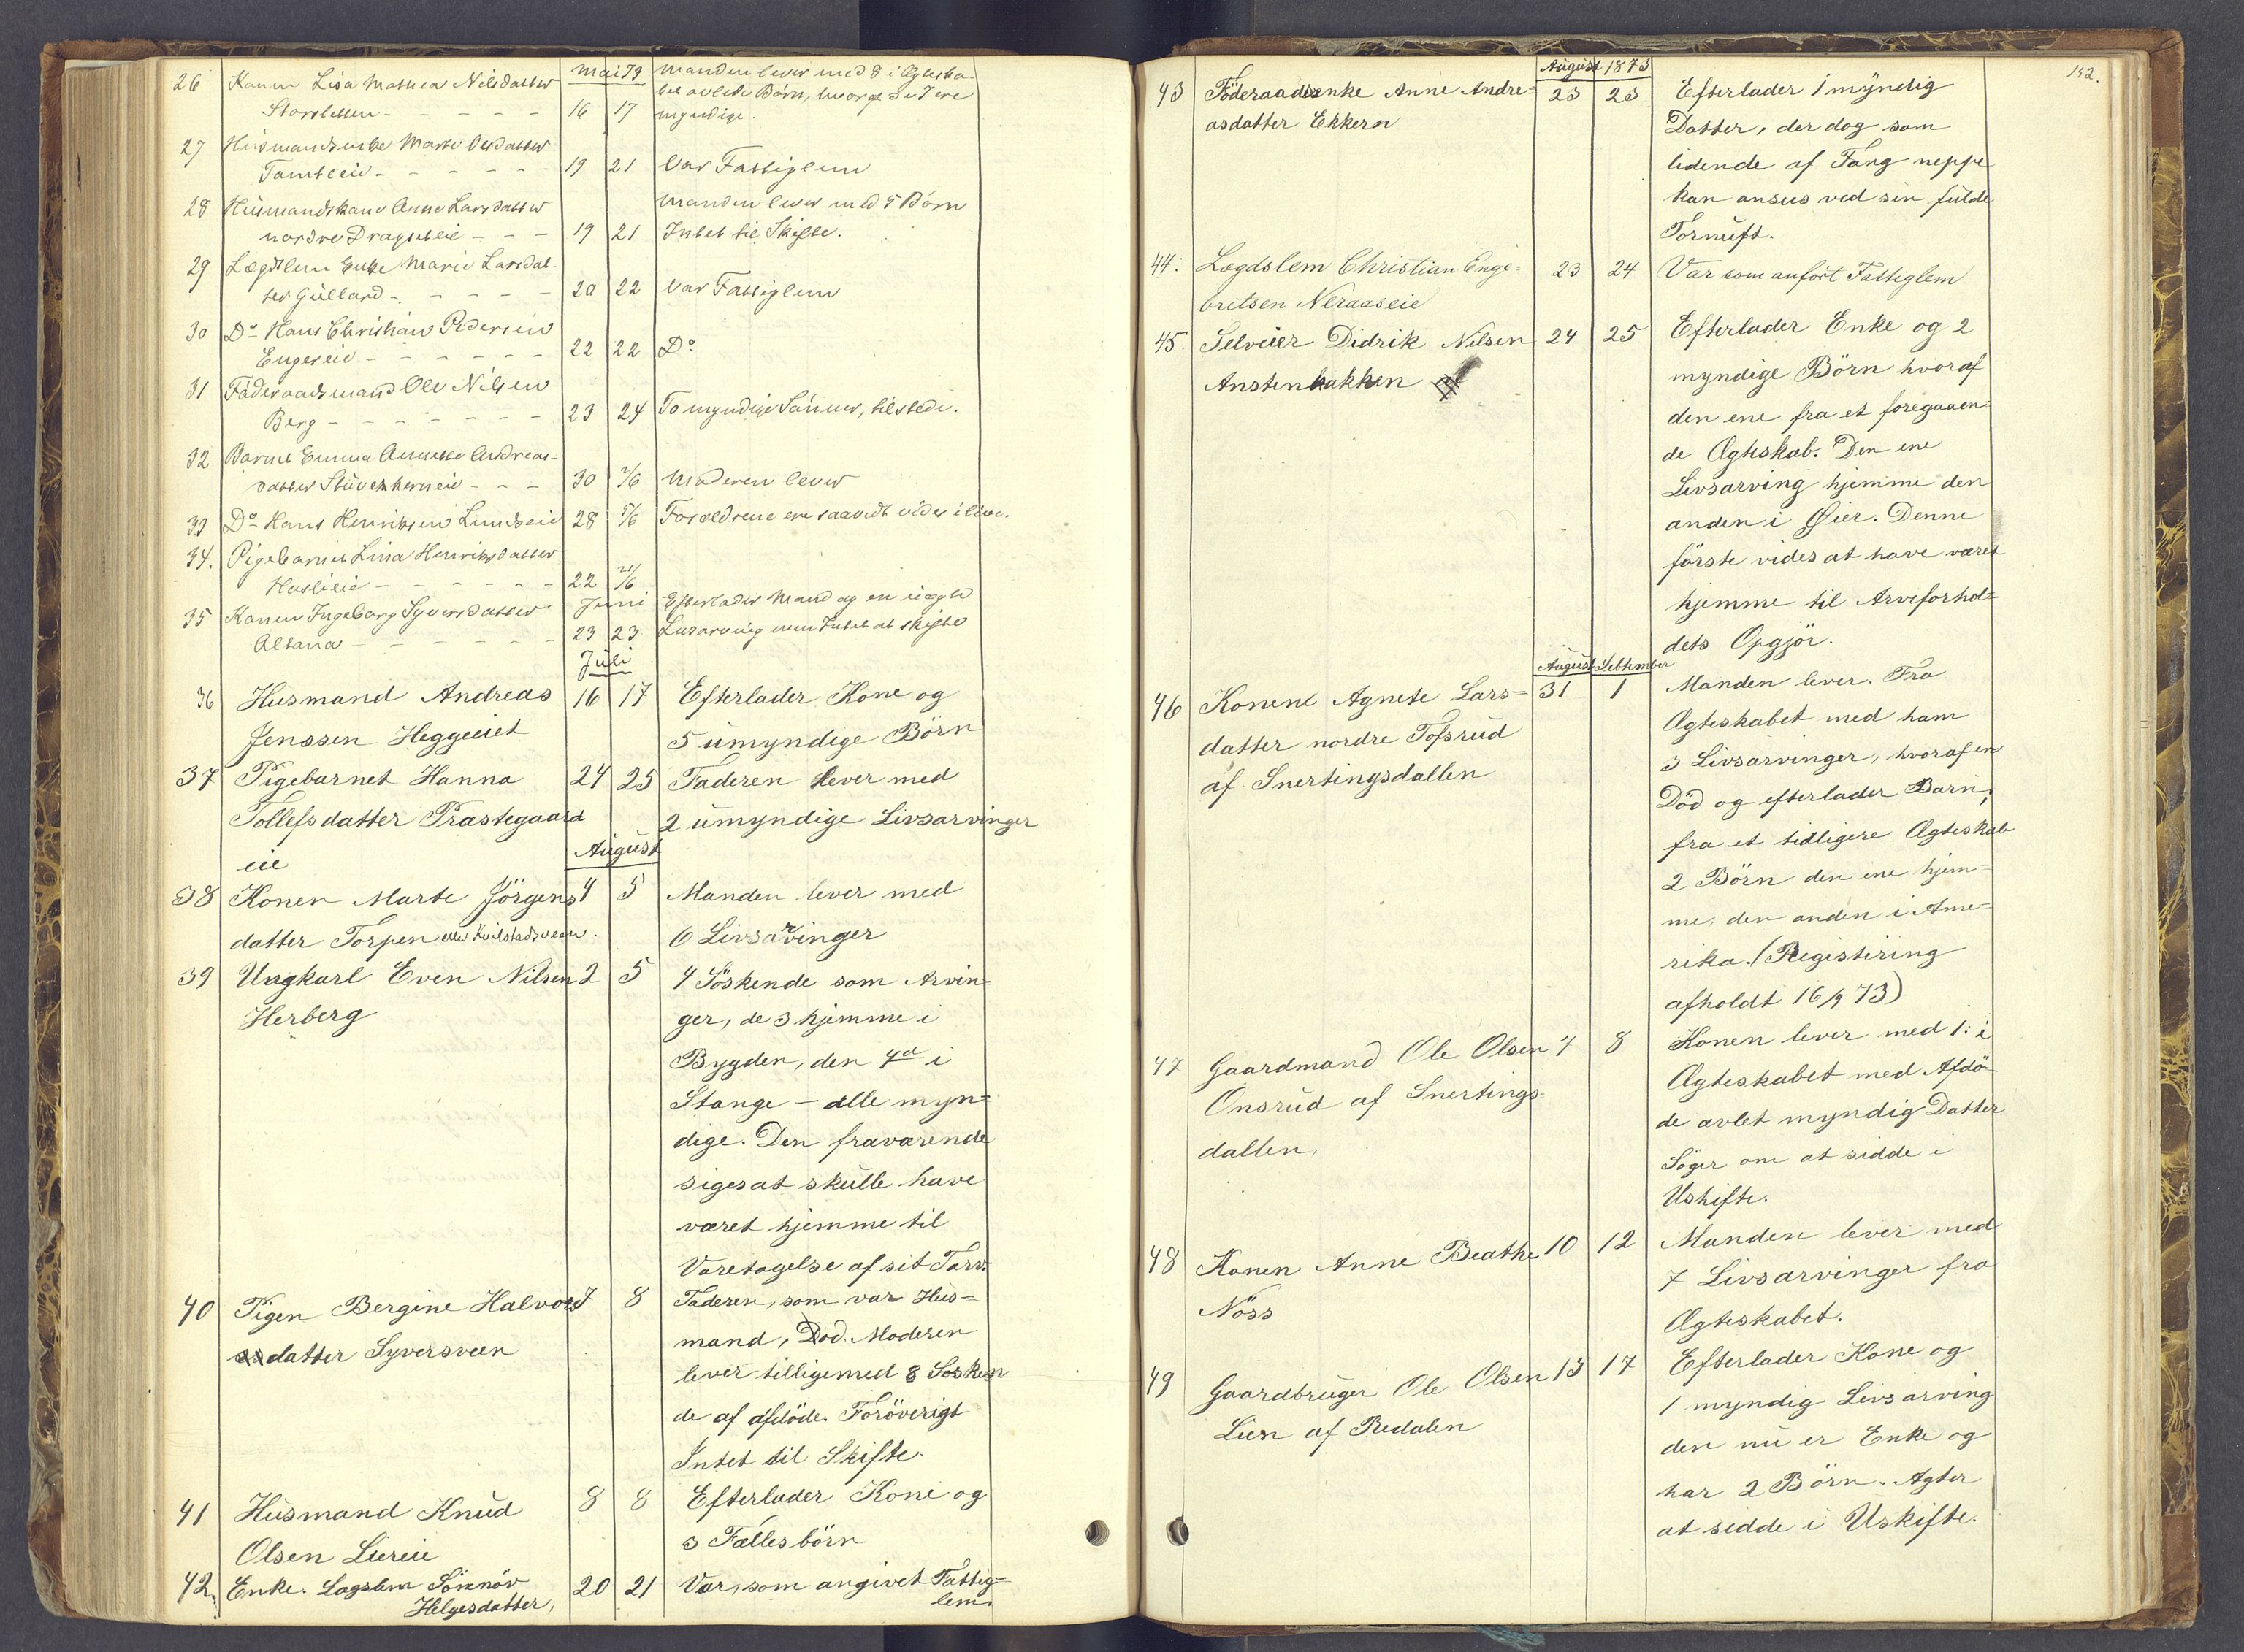 Mai 73
26 Konen Lisa Mathea Nilsdatter
Storslettens - - - - - 16 17
Manden lever med 8 i Ægteska-
bet avlede Børn, hvoraf de 7 ere
myndige.
27 Husmandsenke Marte Olsdatter
Tomteeie - - - - - - 19 21 Var Fattiglem
28 Husmandskone Anne Larsdatter
nordre Dragseteie - - - 19 21
Manden lever med 5 Børn
Intet til Skifte.
29 Lægdslem Enke Marie Larsdat-
ter Gullard - - - - - 20 22 Var Fattiglem
30 Do Hans Christian Pedersen
Engereie - - - - - - 22 22 Do
31 Föderaadsmand Ole Nilsen
Berg - - - - - - 23 24 To myndige Sönner, tilstede.
32 Barnet Emma Annette Andreas-
datter Stuvekkerneie - - - 30 2/6 Moderen lever
33 Do Hans Henriksen Lundseie 28 5/6 Forældrene ere saavidt vides ilive.
34. Pigebarnet Lina Henriksdatter
Haslieie - - - - - - 22 21/6
Juni
35 Konen Ingeborg Syversdatter
Altana - - - - - - 23 23
Efterlader Mand og en uægte
Livsarving men Intet at skifte
Juli
36 Husmand Andreas 16 17 Efterlader Kone og
Jenssen Heggeeiet 5 umyndige Börn
37 Pigebarnet Hanna 24 25 Faderen lever med
Tollefsdatter Præstegaard 2 umyndige Livsarvinger
eie
August
38 Konen Marte Jörgens 4 5 Manden lever med
datter Torpen eller Kvilstadsveen. 6 Livsarvinger
39 Ungkarl Even Nilsen 2 5 4 Söskende som Arvin-
Herberg ger, de 3 hjemme i
Bygden, den 4d i
Stange - alle myn-
dige. Den fraværende
siges at skulle have
været hjemme til
Varetagelse af sit Tarv.
40 Pigen Bergine Halvors 7 8 Faderen, som var Hus-
datter Syversveen mand, Död. Moderen
lever tilligemed 8 Sösken
de af afdöde. Foröverigt
Intet til Skifte.
41 Husmand Knud 8 8 Efterlader Kone og
Olsen Liereie 3 Fællesbörn
42. Enke. Lægslem Sönnöv 20 21 Var, som angivet Fattig-
Helgesdatter, lem.
152.
August 1873
43 Föderaadsenke Anne Andre- 23 23 Efterlader 1 myndig
asdatter Ekkern Datter, der dog som
lidende af Tang neppe
kan ansees ved sin fulde
Fornuft.
44. Lægdslem Christian Enge- 23 24 Var som anfört Fattiglem
bretsen Neraaseie
45. Selveier Didrik Nilsen 24 25 Efterlader Enke og 2
Anstenbakken myndige Börn hvoraf
den ene fra et foregaaen-
de Ægteskab. Den ene
Livsarving hjemme den
anden i Øier. Denne
förste vides at have været
hjemme til Arveforhol-
dets Opgjör.
August September
46 Konene Agnete Lars- 31 1 Manden lever. Fra
datter nordre Tofsrud Ægteskabet med ham
af Snertingsdallen 3 Livsarvinger, hvoraf en
Död og efterlader Barn;
fra et tidligere Ægteskab
2 Börn den ene hjem-
me, den anden i Ame-
rika. (Registiring
afholdt 16/9 73)
47 Gaardmand Ole Olsen 7 8 Konen lever med 1: i
Onsrud af Snertings- Ægteskabet med Afdö-
dallen, de avlet myndig Datter
Söger om at sidde i
Uskifte.
48 Konen Anne Beathe 10 12 Manden lever med
Nöss 7 Livsarvinger fra
Ægteskabet.
49 Gaardbruger Ole Olsen 15 17 Efterlader Kone og
Lien af Redalen 1 myndig Livsarving
den nu er Enke og
har 2 Börn. Agter
at sidde i Uskifte.